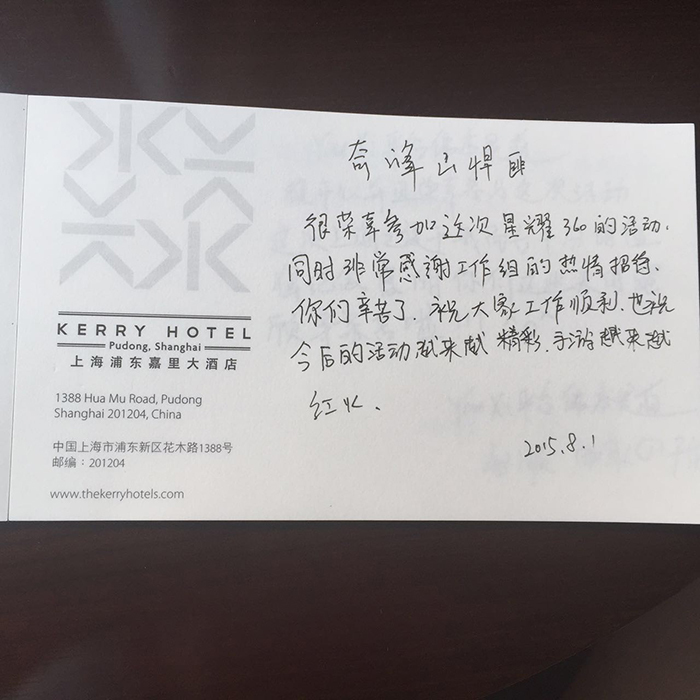 奇峰山悍匪
很荣幸参加这次星耀360的活动.
同时非常感謝工作组的热情招待.
你们辛苦了.祝大家工作顺利.也祝
今后的活动越来越精彩.手游越来越
红火.
2015.8.1
KERRY HOTEL
Pudong, Shanghai
上海浦东嘉里大酒店
1388 Hua Mu Road, Pudong
Shanghai 201204, China
中国上海市浦东新区花木路1388号
邮编：201204
www.thekerryhotels.com